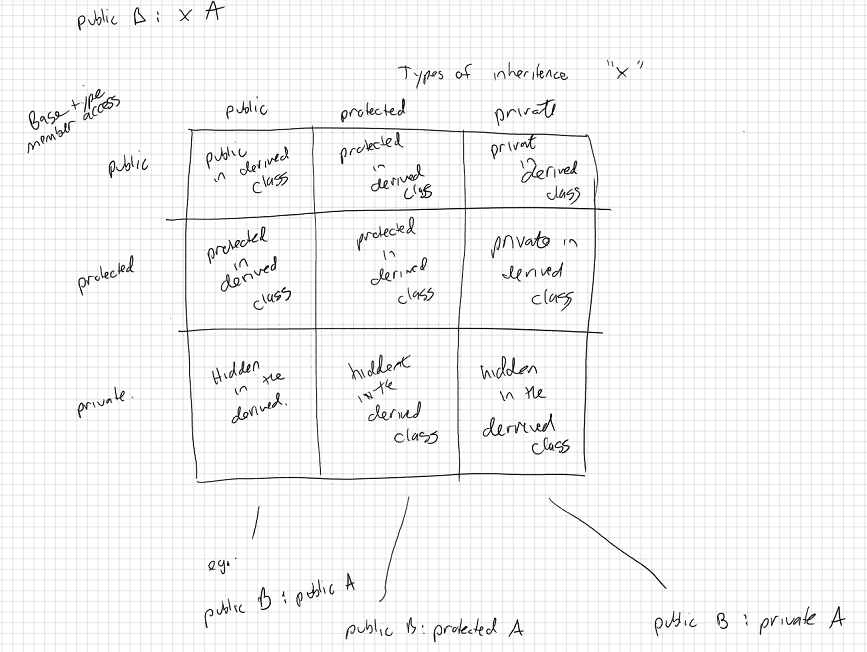 public B : x A
Types of inheritence "x"
Base type
member access
public protected private
public
public
in derived
class
protected
in
derived
class
privat
in
derived
class
protected
protected
in
derived
class
protected
in
derived
class
private in
derived
class
private.
Hidden
in the
derived.
hiddent
in the
derived
class
hidden
in the
derived
class
eg.
public B : public A
public B : protected A
public B : private A